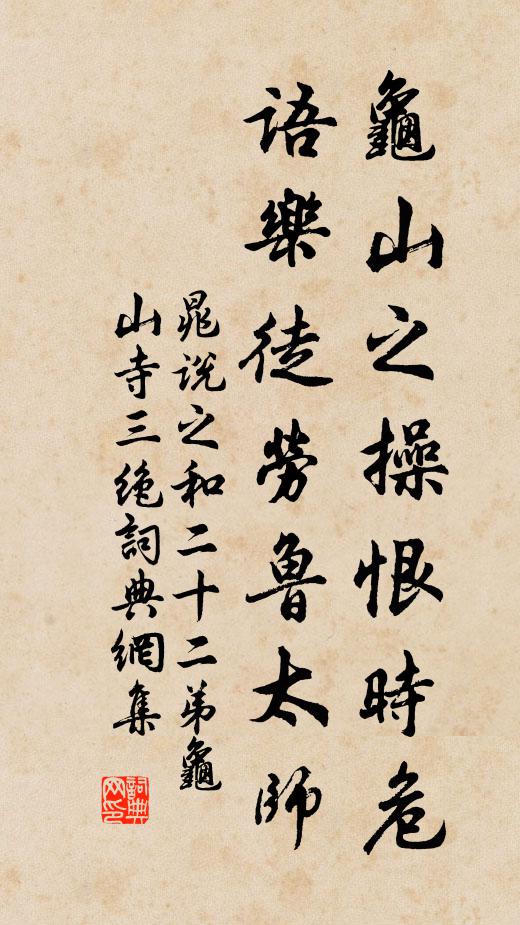 龜山之操恨時危
語樂徒勞魯太師
晁说之和二十二弟龜
山寺三絶詞典網集
詞典網印